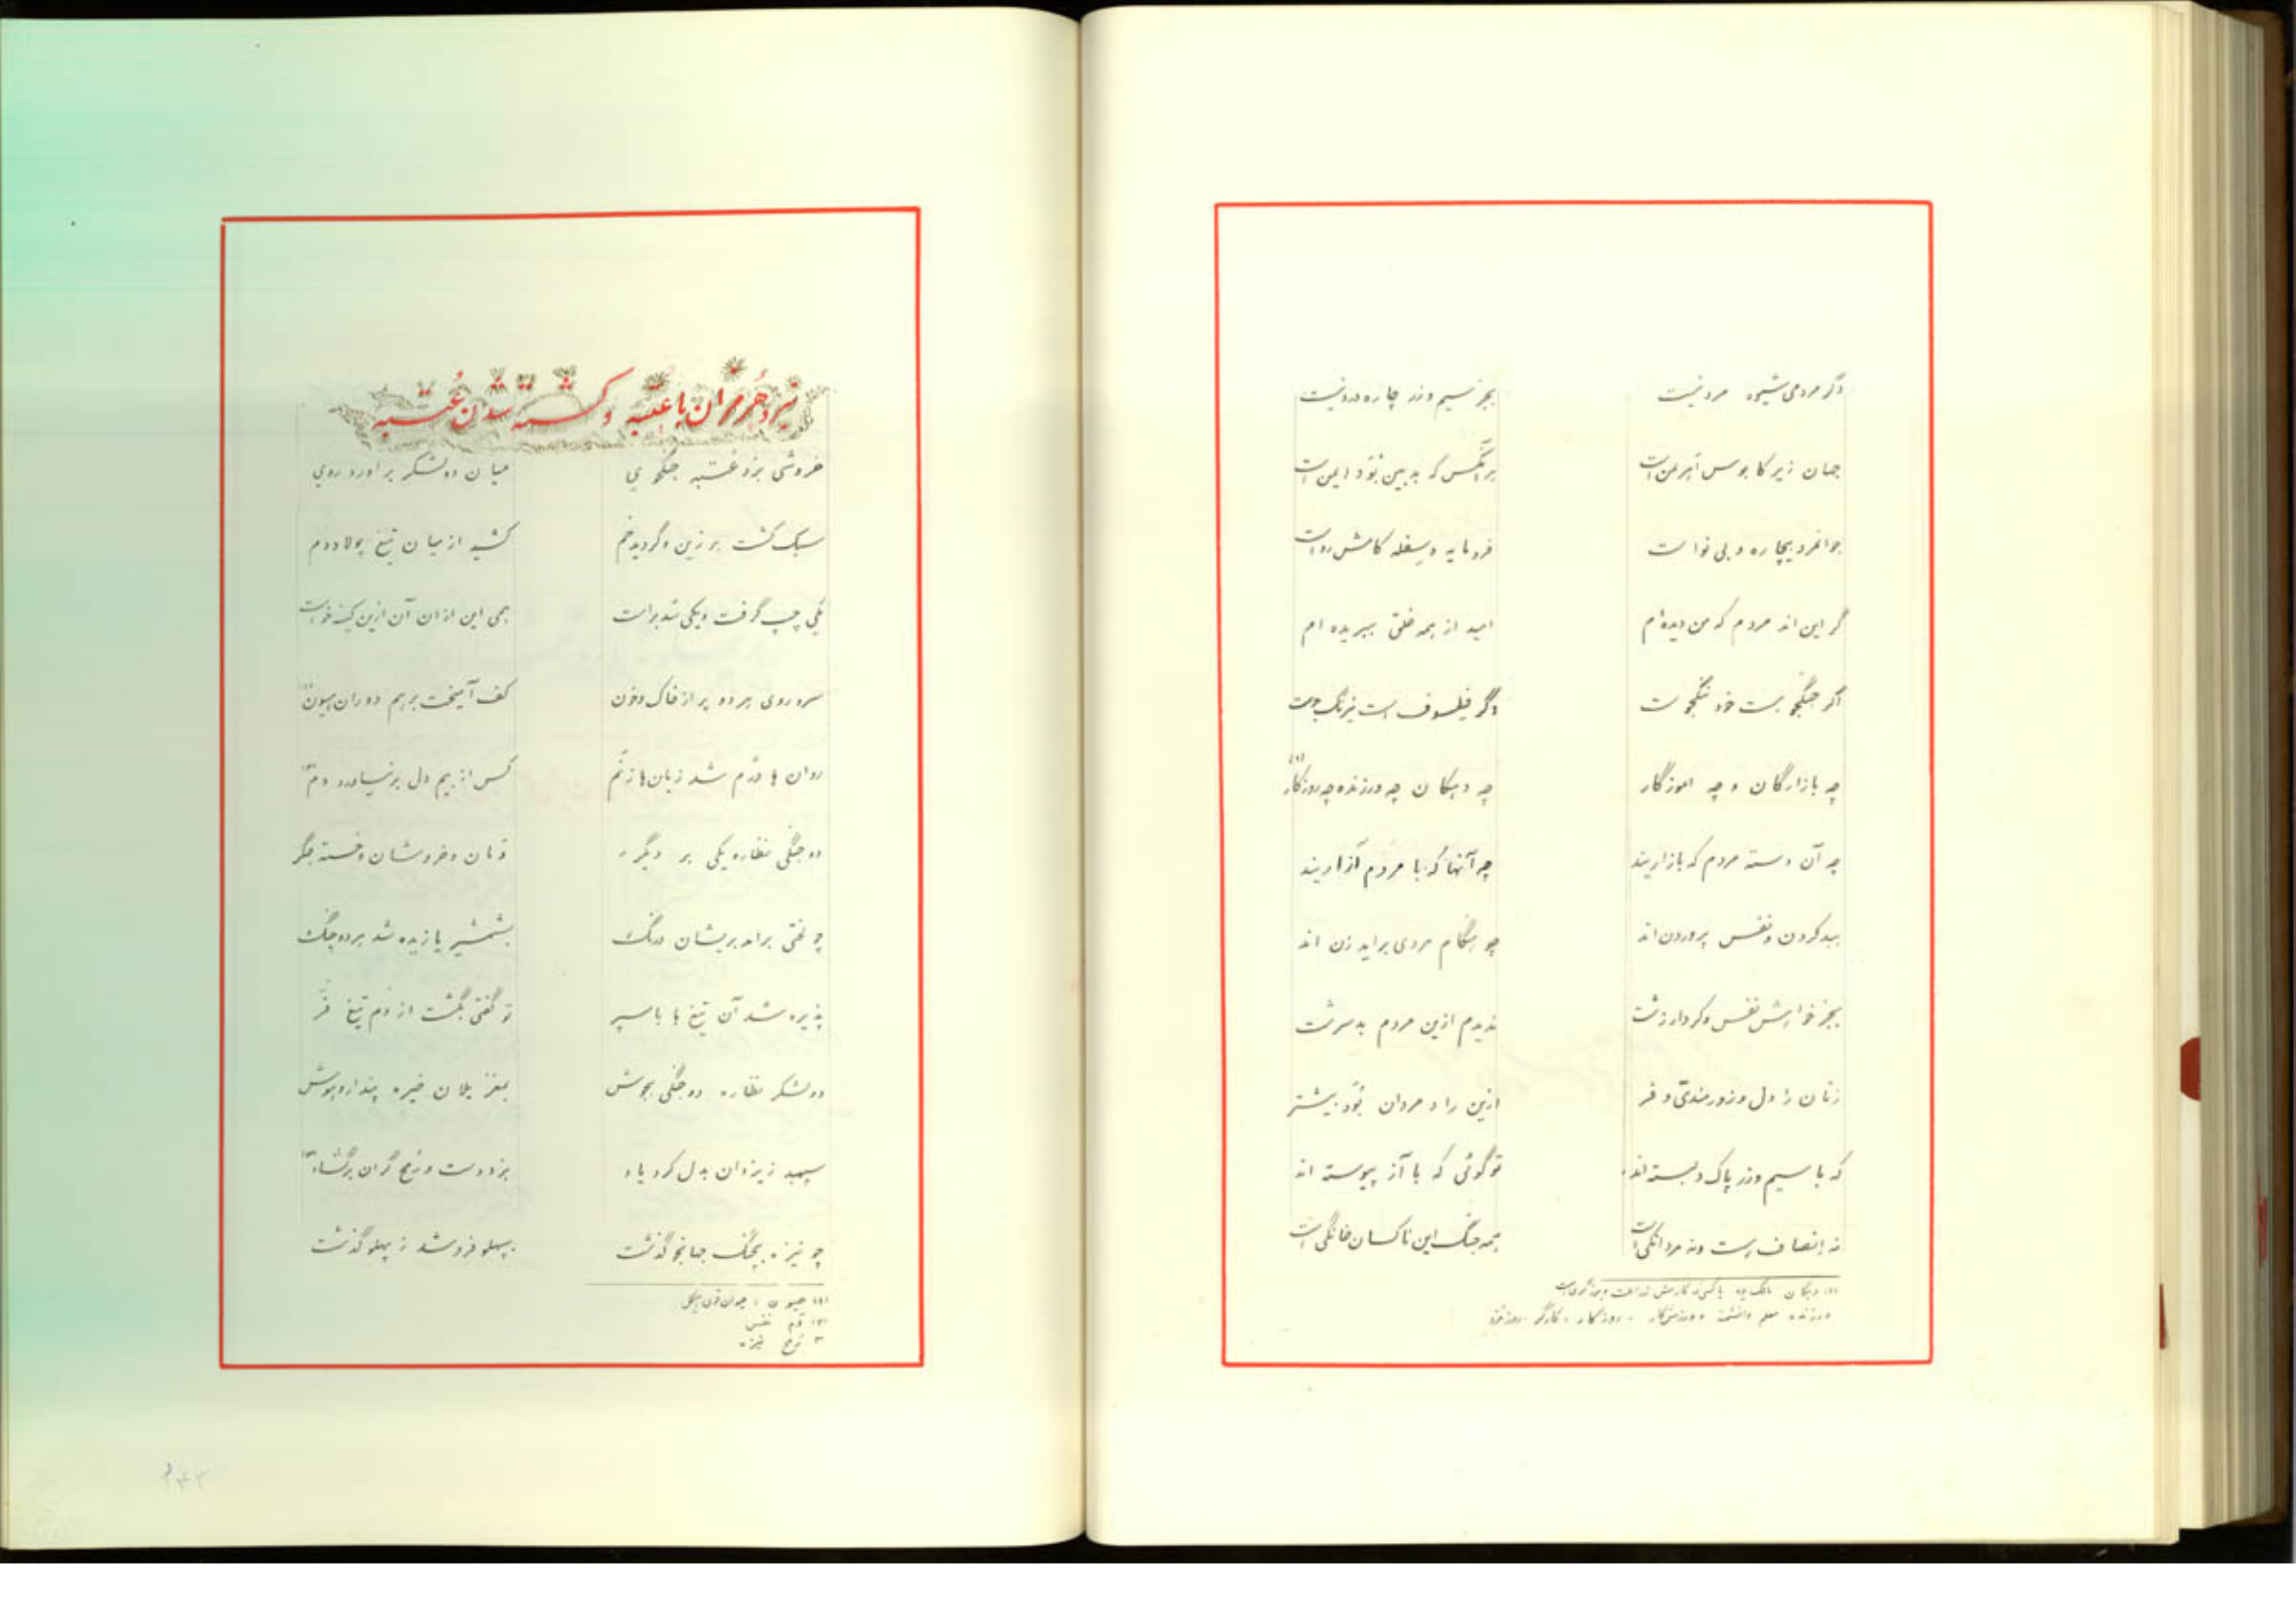 دگر مردمی شیوه مرد نیست
بجز سیم و زر چاره درد نیست
جهان زیر کابوس اهرمن است
هر آنکس که بد بین بُوَد ایمن است
جوانمرد بیچاره و بی نواست
فرومایه و سفله کامش رواست
گر این اند مردم که من دیده‌ام
امید از همه خلق ببریده ام
اگر جنگجو هست خود ننگجوست
دگر فیلسوف است نیرنگ جوست
چه بازارگان و چه آموزگار
چه دهگان چه ورزنده چه روزکار (۱)
چه آن دسته مردم که بازاریند
چه آنها که با مردم آزاریند
ببد کردن و نفس پروردن اند
چو هنگام مردی برآید زن اند
بجز خواهش نفس و کردار زشت
ندیدم ازین مردم بدسرشت
زنان را دل و زورمندی و فر
ازین راد مردان بُوَد بیشتر
که با سیم و زر پاک دلبسته اند
تو گوئی که با آز پیوسته اند
نه انصاف هست و نه مردانگی است
همه جنگ این ناکسان خانگی است
(۱) دهگان
ورزنده معلم ورزشکار روزکار کارگر روزمزد
نبرد هُرمزان با عُتبه و کشته شدن عُتبه
خروشی بزد عُتبه جنگجوی
میان دو لشکر برآورد روی
سبک گشت بر زین و گردید خم
کشید از میان تیغ پولاد دم
یکی چپ گرفت و یکی شد براست
همی این از آن آن ازین کینه خواست
سر و روی هر دو پر از خاک و خون
کف آمیخت بر هم دو ران هیون (۱)
روان ها دژم شد زبان ها ز نَم
کس از بیم دل بر نیاورد دم (۲)
دو جنگی نظاره یکی بر دگر
دمان و خروشان و خسته جگر
چو لختی برآمد بریشان درنگ
بشمشیر یازیده شد هر دو چنگ
پذیره شد آن تیغ ها با سپر
تو گفتی بگشت از دم تیغ فر
دو لشکر نظاره دو جنگی بجوش
بمغز یلان خیره پندار و هوش
سپهبد ز یزدان بدل کرد یاد
بزد دست و رُمح گران برگشاد (۳)
چو نیزه بچنگ جهانجو گذشت
بپهلو فرو شد ز پهلو گذشت
(۱) هیون : حیوان قوی هیکل
(۲) دَم نفس
۳ رُمح نیزه